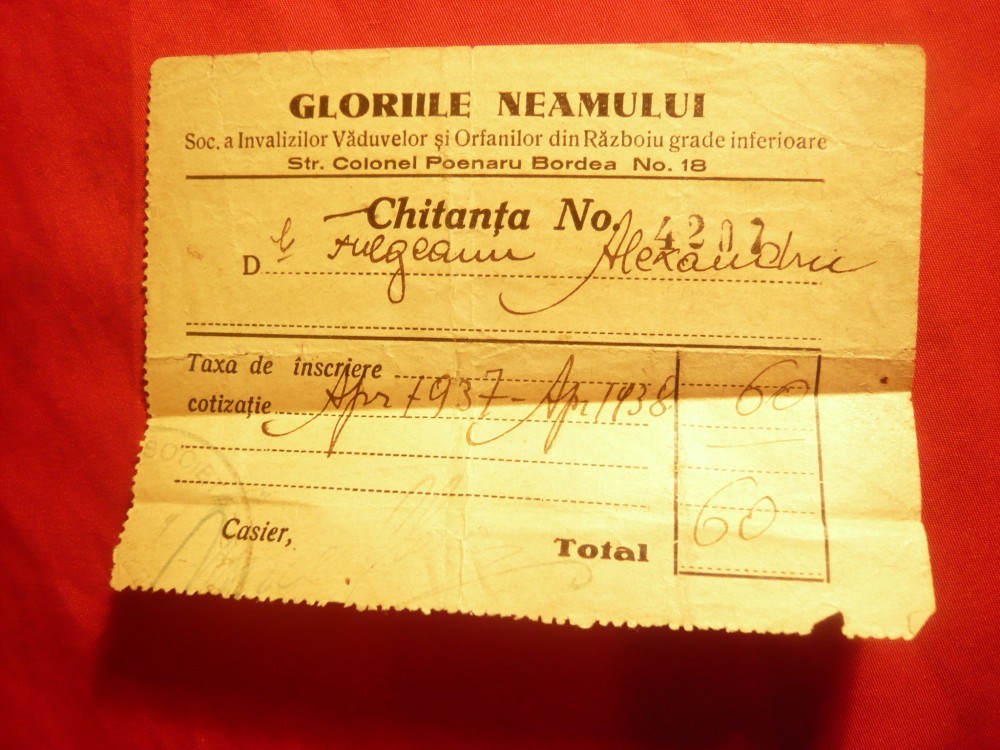 GLORIILE NEAMULUI
Soc. a Invalizilor Văduvelor și Orfanilor din Războiu grade inferioare
Str. Colonel Poenaru Bordea No. 18
Chitanța No. 4207
D l Alexandru
Taxa de înscriere
cotizație Apr 1937 - Apr 1938 60
Casier,
Total 60